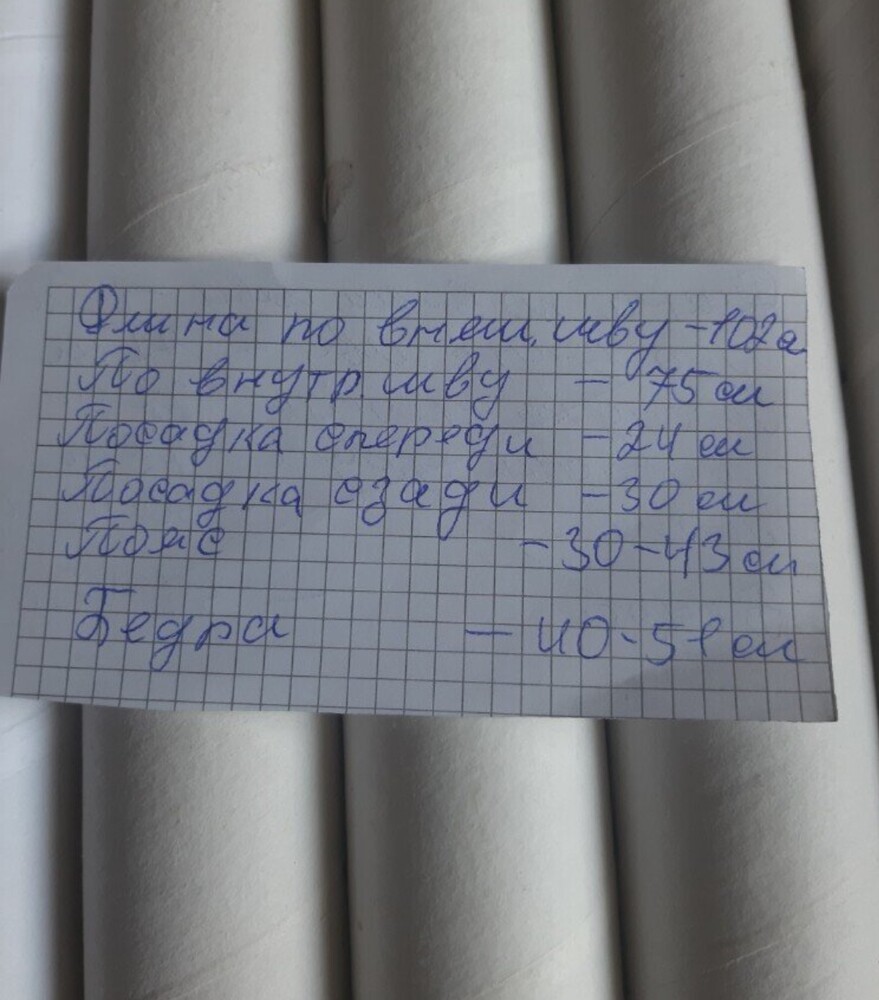 Длина по внеш. шву - 102 см
По внутр шву - 75 см
Посадка спереди - 24 см
Посадка сзади - 30 см
Пояс - 30-43 см
Бедра - 40-51 см